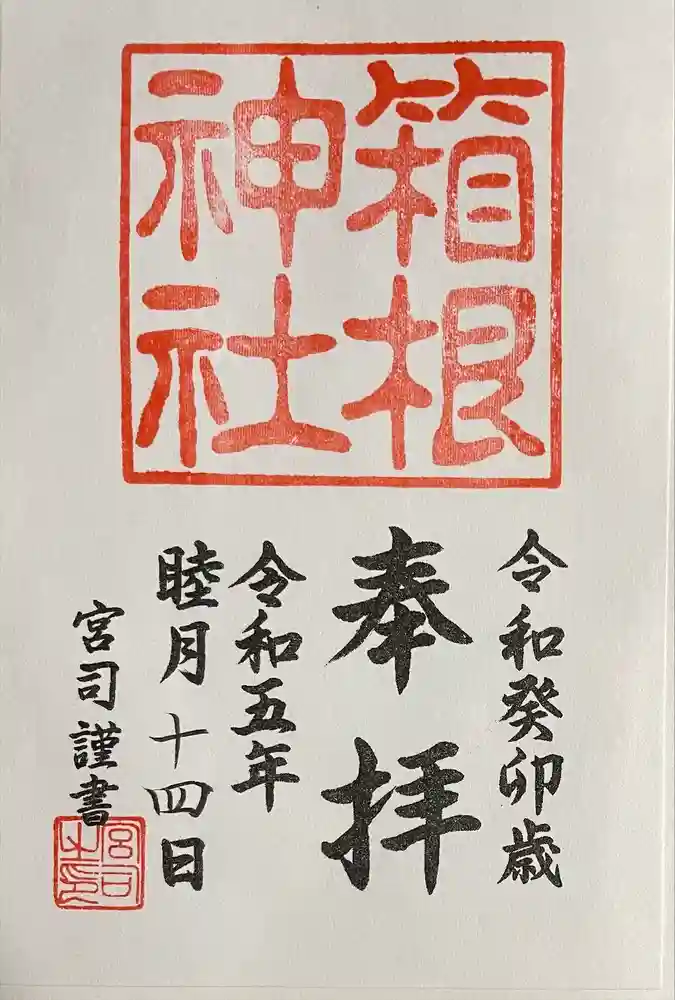 箱根
神社
令和癸卯歳
奉拝
令和五年
睦月十四日
宮司謹書
宮司
之印